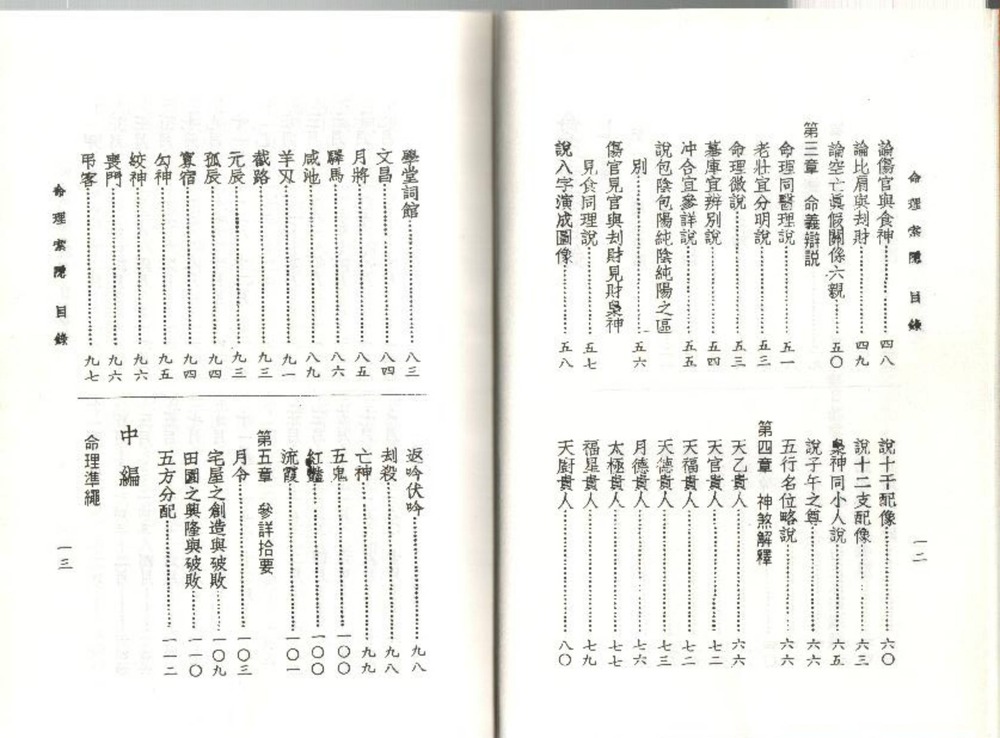 命理索隱 目錄
一二
論傷官與食神 四八
論比肩與刦財 四九
論空亡眞假關係六親 五〇
第三章 命義辯説
命理同醫理說 五一
老壯宜分明說 五三
命理微說 五三
墓庫宜辨別說 五四
冲合宜參詳說 五五
說包陰包陽純陰純陽之區
別 五六
傷官見官與刦財見財梟神
見食同理說 五七
說八字演成圖像 五八
說十干配像 六〇
說十二支配像 六三
梟神同小人說 六五
說子午之尊 六六
五行名位略說 六六
第四章 神煞解釋
天乙貴人 六六
天官貴人 七二
天福貴人 七二
天德貴人 七三
月德貴人 七六
太極貴人 七七
福星貴人 七九
天廚貴人 八〇
學堂詞館 八三
文昌 八四
月將 八五
驛馬 八六
咸池 八九
羊刄 九一
截路 九三
元辰 九三
孤辰 九四
寡宿 九四
勾神 九五
絞神 九六
喪門 九六
弔客 九七
返吟伏吟 九八
刦殺 九八
亡神 九九
五鬼 一〇〇
紅豔 一〇〇
流霞 一〇一
第五章 參詳拾要
月令 一〇三
宅屋之創造與破敗 一〇九
田園之興隆與破敗 一一〇
五方分配 一一二
中編
命理準繩
命理索隱 目錄
一三